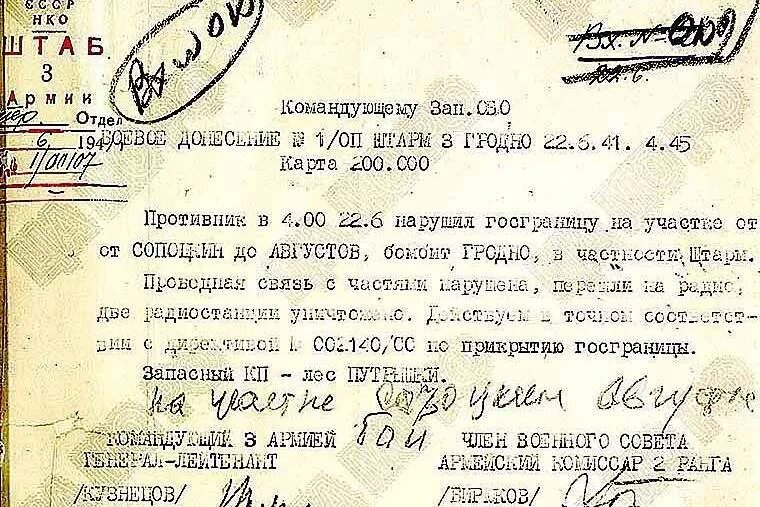 СССР
НКО
ШТАБ
3
Армии
Отдел
6 1941
1/оп/07
Вх. №
22.6.
Командующему Зап.ОВО
БОЕВОЕ ДОНЕСЕНИЕ № 1/ОП ШТАРМ 3 ГРОДНО 22.6.41. 4.45
Карта 200.000
Противник в 4.00 22.6 нарушил госграницу на участке от
от СОПОЦКИН до АВГУСТОВ, бомбит ГРОДНО, в частности Штарм.
Проводная связь с частями нарушена, перешли на радио,
две радиостанции уничтожено. Действуем в точном соответст-
вии с директивой № 002140/СС по прикрытию госграницы.
Запасный КП - лес ПУТРЫШКИ.
на участке Сапоцкин Август
КОМАНДУЮЩИЙ 3 АРМИЕЙ ЧЛЕН ВОЕННОГО СОВЕТА
ГЕНЕРАЛ-ЛЕЙТЕНАНТ АРМЕЙСКИЙ КОМИССАР 2 РАНГА
/КУЗНЕЦОВ/ /БИРЮКОВ/